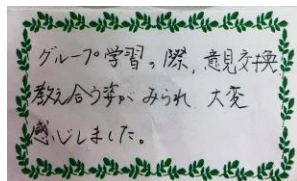 グループ学習の際、意見交換、
教え合う姿がみられ、大変
感心しました。